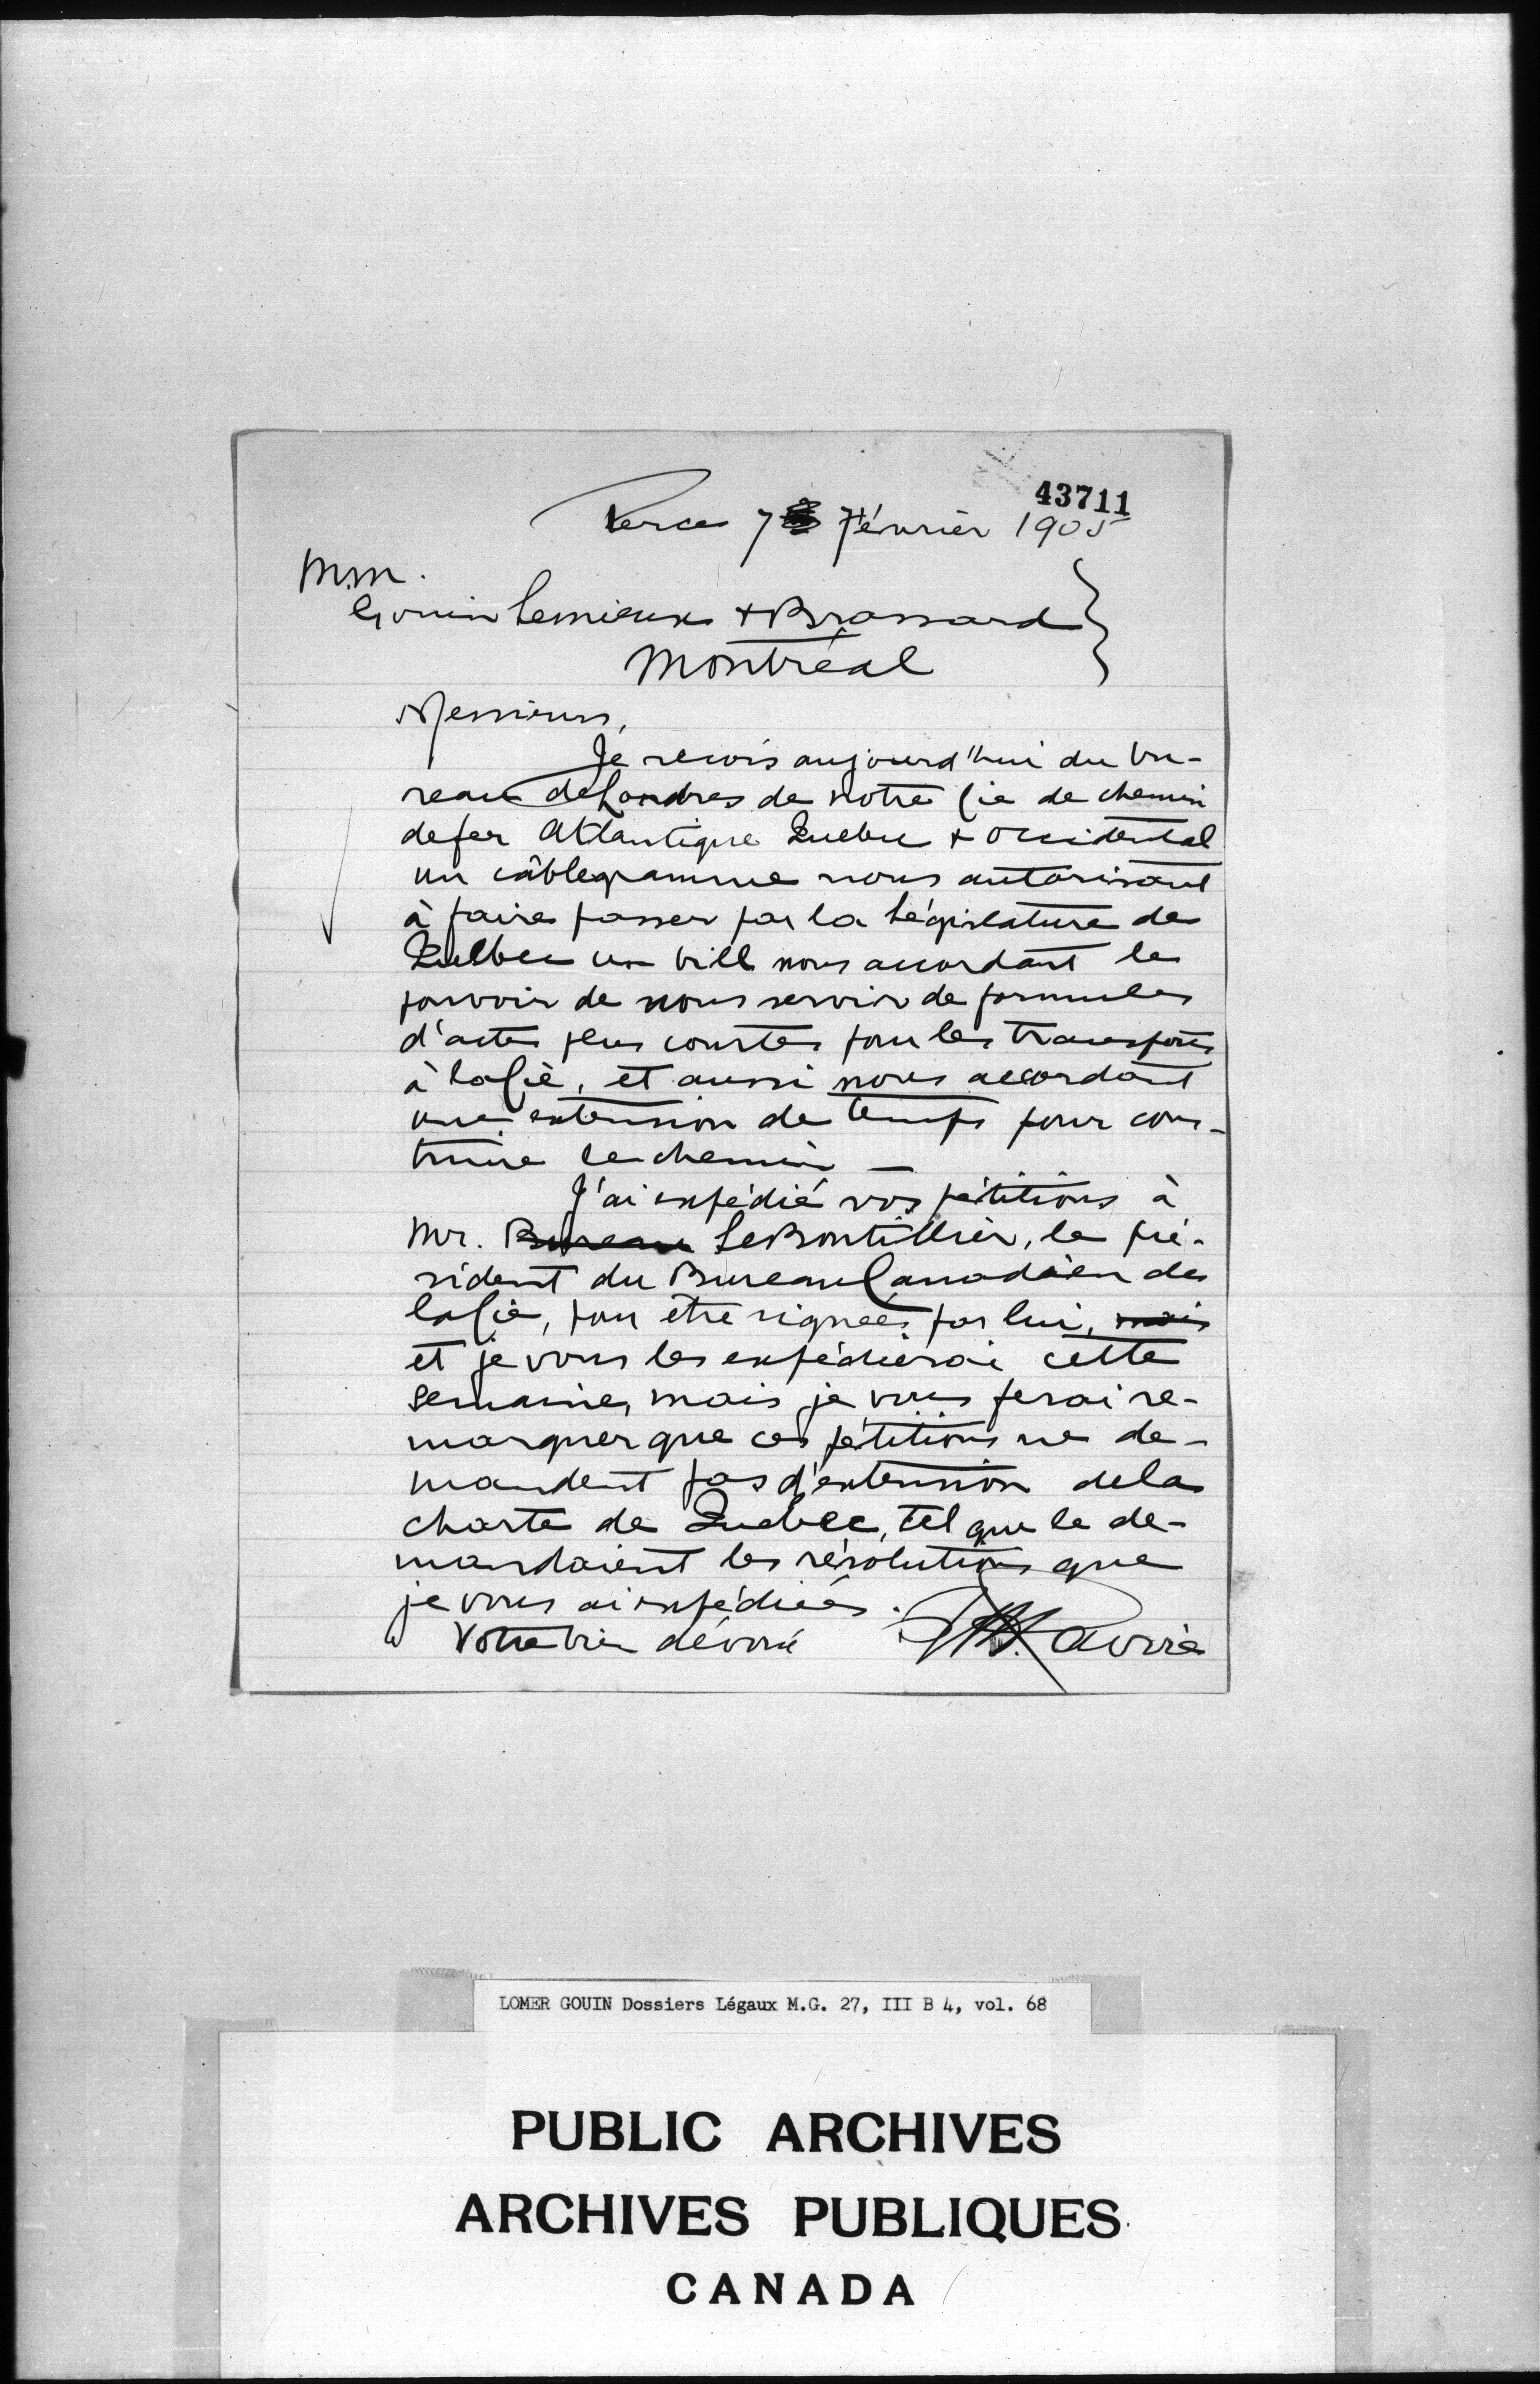 43711
Percé 7 Février 1905
M.M.
Gouin Lemieux & Brassard
Montréal
Messieurs,
Je recois aujourd'hui du bu-
reau de Londres de notre Cie de chemin
de fer Atlantique Quebec & Occidental
un câblegramme nous autorisant
à faire passer par la Législature de
Quebec un bill nous accordant le
pouvoir de nous servir de formules
d'actes plus courtes pour les transports
à la Cie, et aussi nous accordant
une extension de temps pour cons-
truire le chemin —
J'ai expédié vos pétitions à
Mr. Bureau LeBoutillier, le pré-
sident du Bureau Canadien de
la Cie, pour être signées par lui, mais
et je vous les expédierai cette
semaine, mais je vous ferai re-
marquer que ces pétitions ne de-
mandent pas d'extension de la
charte de Quebec, tel que le de-
mandaient les résolutions que
je vous ai expédiées.
Votre bien dévoué
LOMER GOUIN Dossiers Légaux M.G. 27, III B 4, vol. 68
PUBLIC ARCHIVES
ARCHIVES PUBLIQUES
CANADA